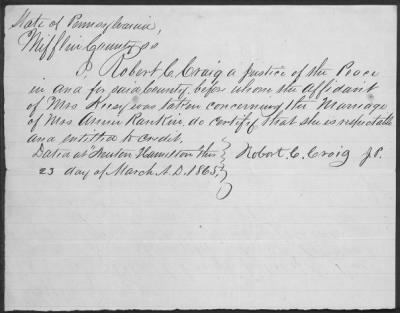 State of Pennsylvania,
Mifflin County, ss
I Robert C. Craig a Justice of the Peace
in and for said County, before whom the affidavit
of Mrs was taken concerning the Marriage
of Mrs Rankin, do certify that she is respectable
and entitled to credit.
Dated at Newton Hamilton this
Robert C. Craig J.P.
23 day of March A.D. 1865,